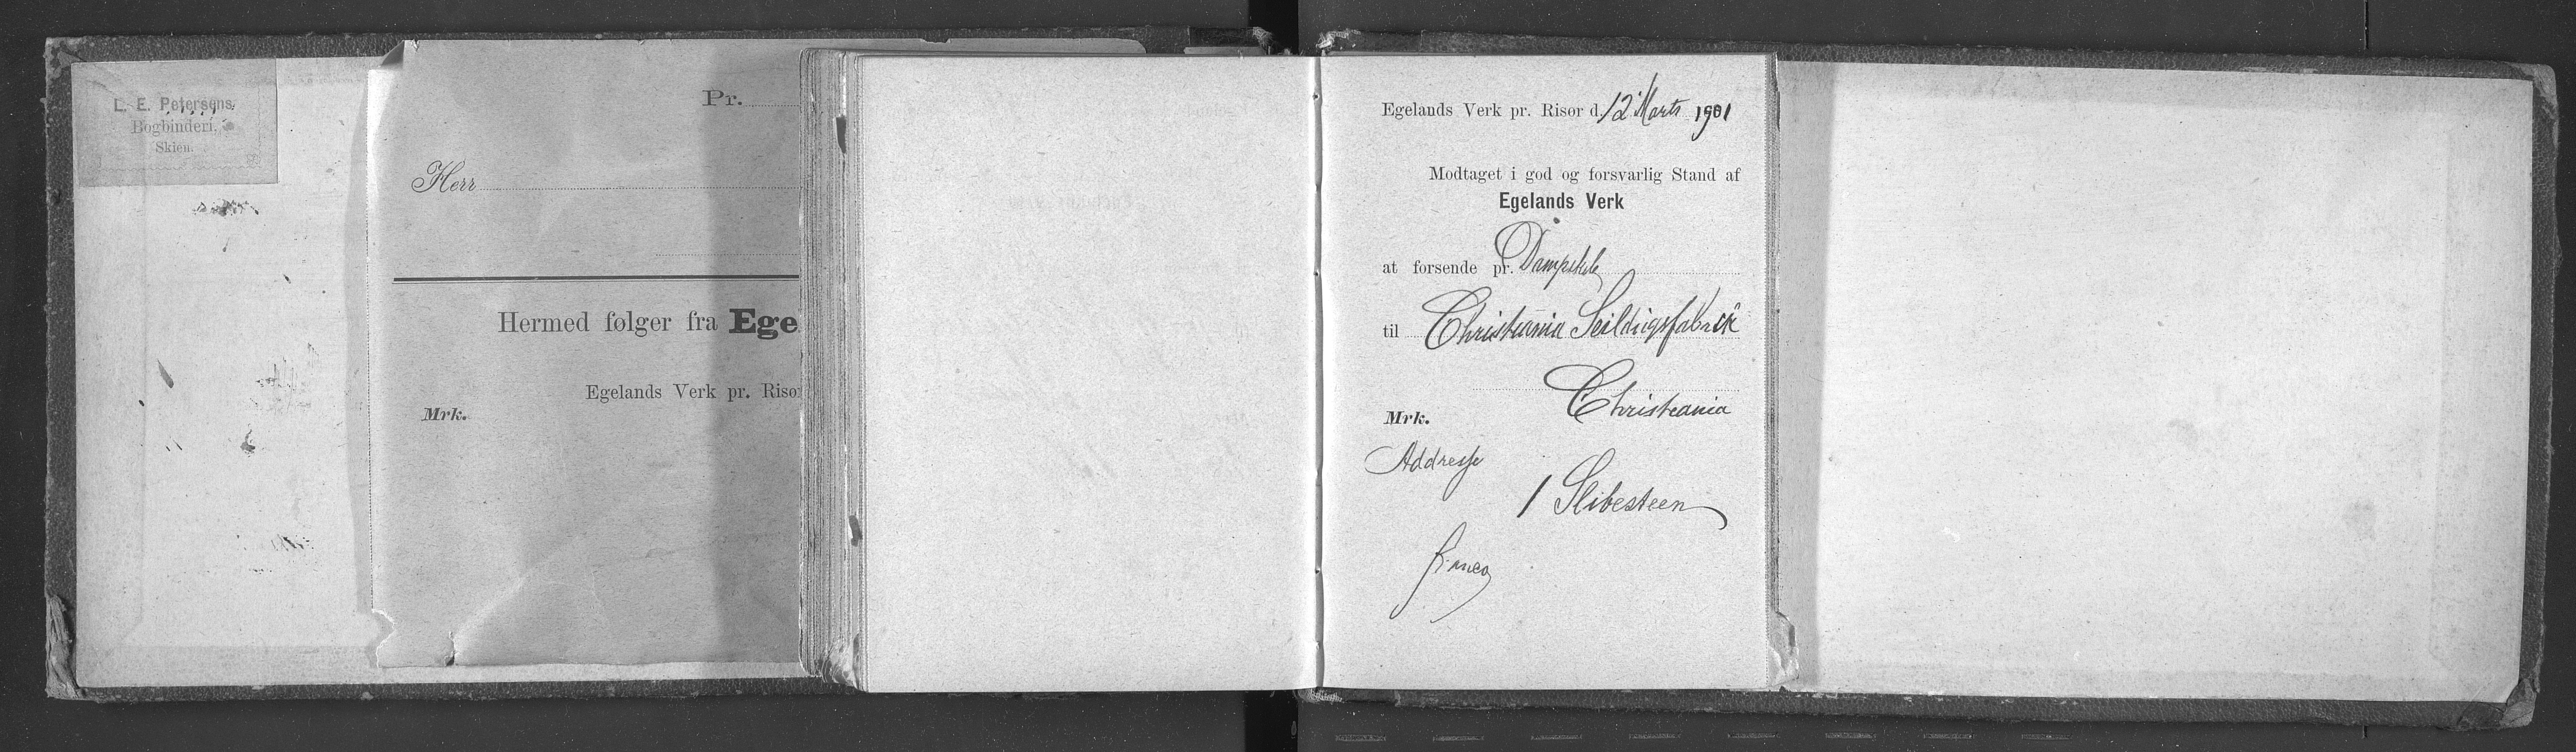 L. E. Petersens
Bogbinderi,
Skien.
Pr.
Herr
Hermed følger fra Ege
Egelands Verk pr. Risør
Mrk.
Egelands Verk pr. Risør d. 12 Marts 1901
Modtaget i god og forsvarlig Stand af
Egelands Verk
at forsende pr. Dampskib
til Christiania Seildugsfabrik
Christiania
Mrk.
Addresse
1 Slibesteen
franco